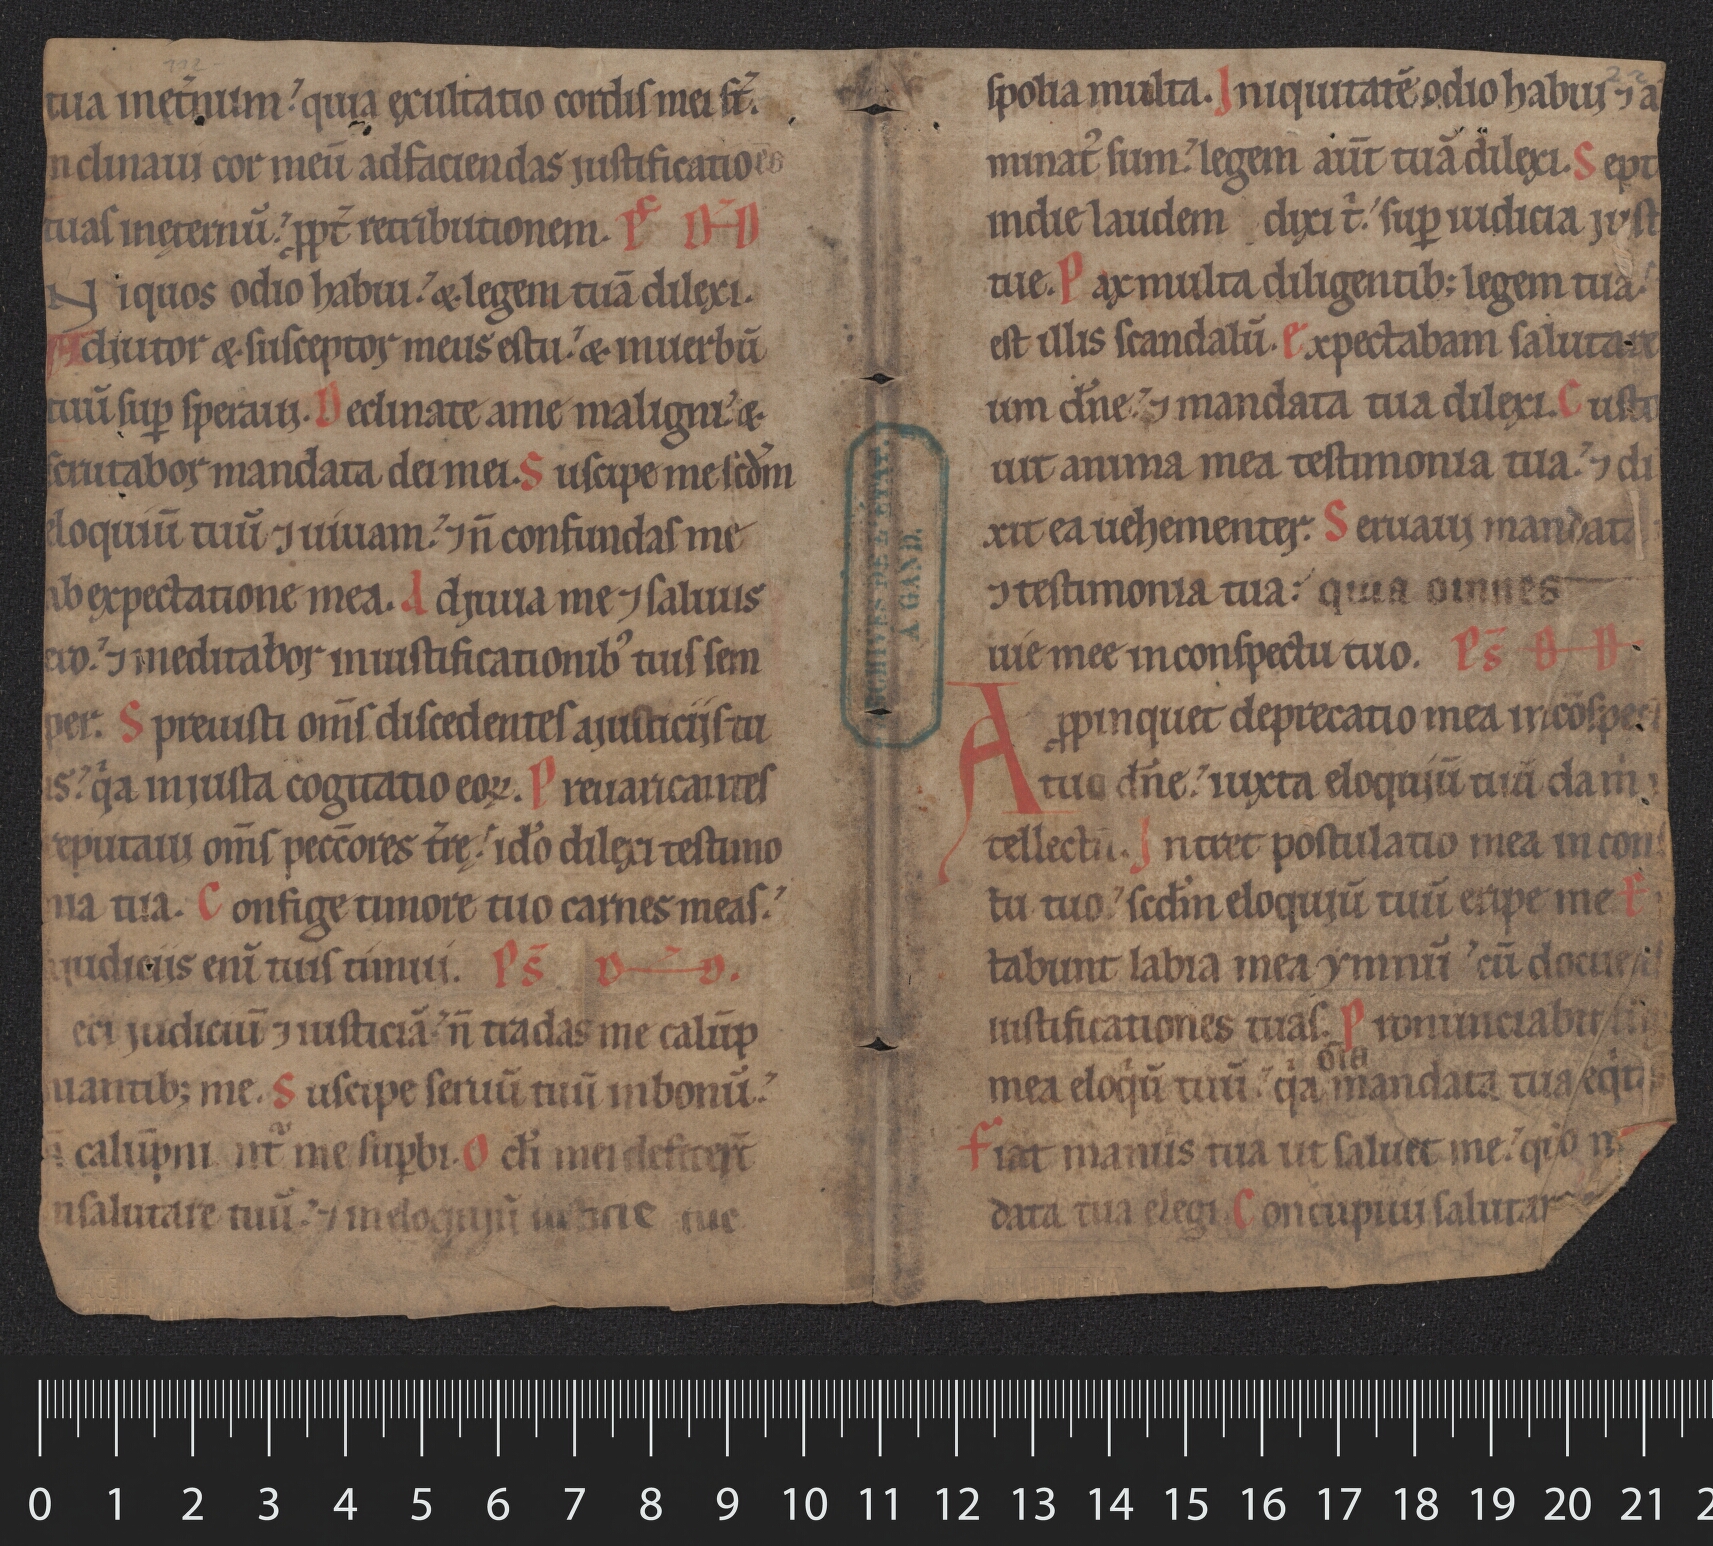 tua inet̄num. quia exultatio cordis mei st̄.
nclinaui cor meū ad faciendas justificatioēs
tuas ineternū. ppt̄ retributionem. Ps D D
N iquos odio habui. & legem tuā dilexi.
Adjutor & susceptor meus es tu. & in uerbū
tuū sup speraui. Declinate a me maligni. &
scrutabor mandata dei mei. Suscipe me scdm
eloquiū tuū ⁊ uiuam. ⁊ n̄ confundas me
ab expectatione mea. Adjuua me ⁊ saluus
ero. ⁊ meditabor in iustificationib’ tuis sem
per. Spreuisti om̄s discedentes a justiciis tu
is. q̇a injusta cogitatio eoꝝ. Preuaricantes
reputaui om̄s pecc̄ores tr̄e. ido dilexi testimo
nia tua. Confige timore tuo carnes meas.
judiciis enī tuis timui. Ps̄ D D.
eci judiciū ⁊ iusticiā. n̄ tradas me calūp
niantib; me. Suscipe seruū tuū in bonū.
n̄ calūpni nt̄ me supbi. Oc̄li mei defecer̄t
n salutare tuū. ⁊ in eloquiū iusticie tue
spolia multa. Iniquitatē odio habui ⁊ a
minat’ sum. legem aūt tuā dilexi. Sept
in die laudem dixi t̄. sup iudicia just
tue. Pax multa diligentib; legem tuā.
est illis scandalū. Expectabam salutare
um dn̄e. ⁊ mandata tua dilexi. Custo
uit anima mea testimonia tua. ⁊ di
xit ea uehementer. Seruaui mandata
⁊ testimonia tua. quia omnes
uie mee in conspectu tuo. Ps̄ D D
Appinquet deprecatio mea in cōspec
tuo dn̄e. iuxta eloquiū tuū da m̄
tellectū. Intret postulatio mea in cons
tu tuo. scdm eloquiū tuū eripe me. E
tabunt labia mea ymnū cū docueri
iustificationes tuas. Pronunciabit lī
mea eloq̇ū tuū. q̇a om̄ia mandata tua eq̇t
Fiat manus tua ut saluet me. qūo n
data tua elegi. Concupiui salutar
ARCHIVES DE L'ÉTAT,
A GAND.
0 1 2 3 4 5 6 7 8 9 10 11 12 13 14 15 16 17 18 19 20 21 2